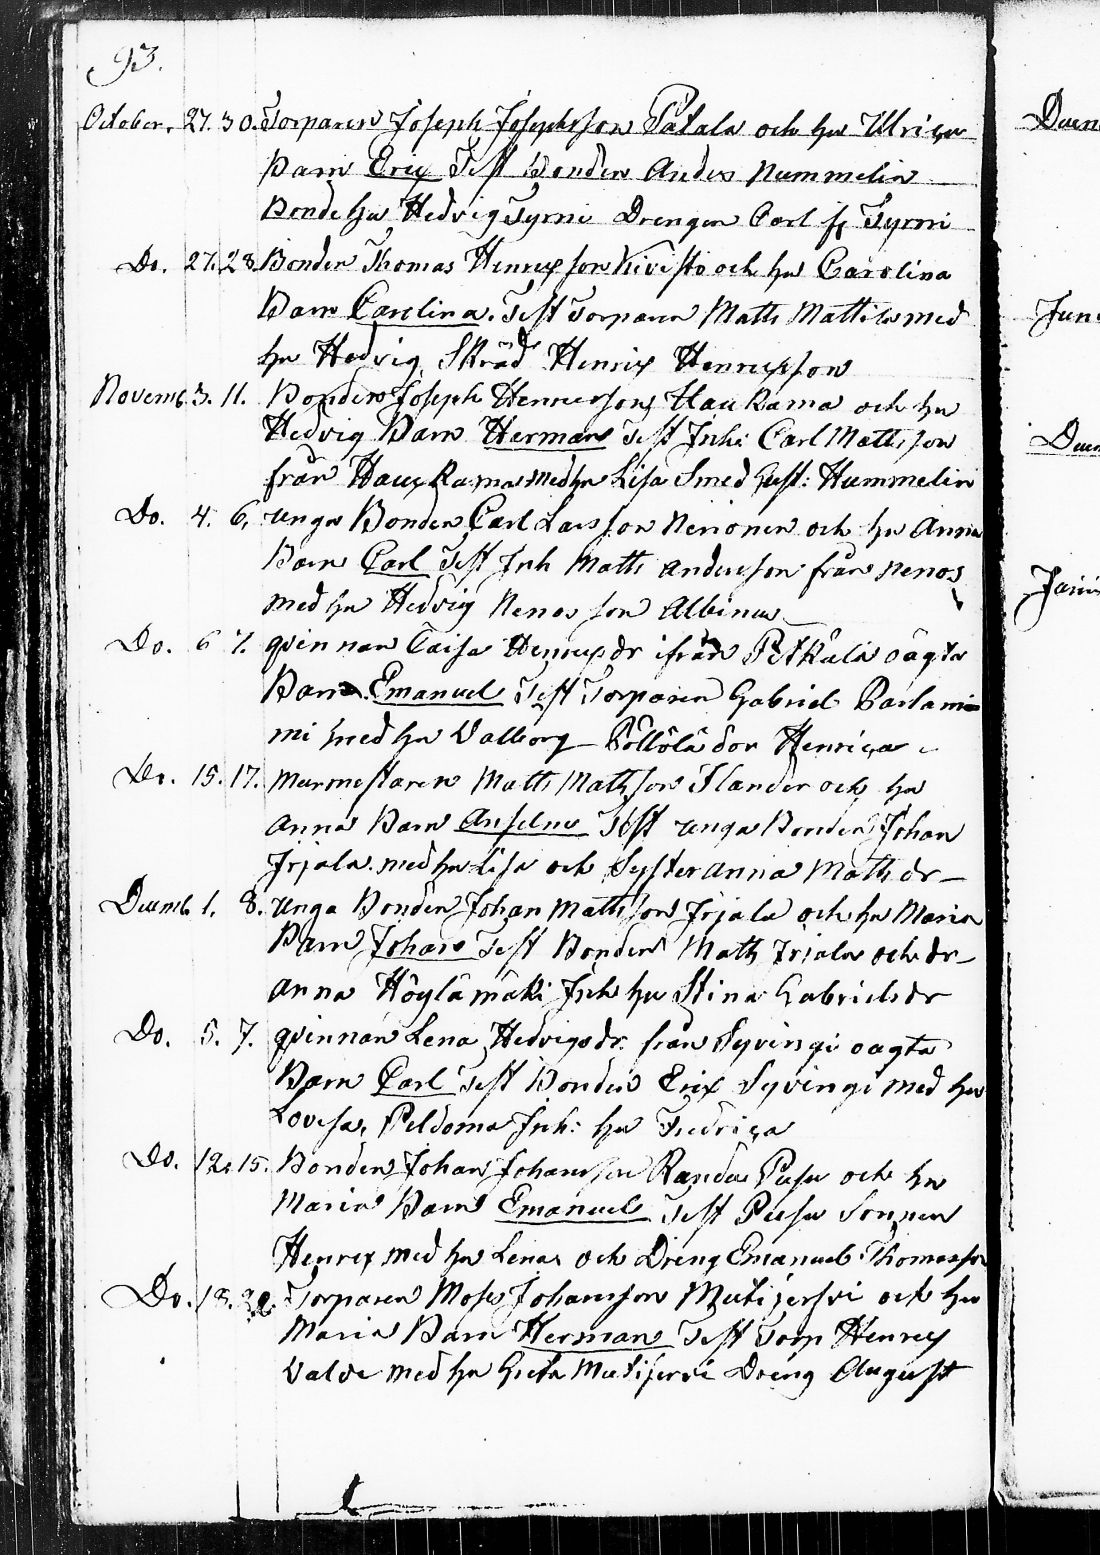 93.
October. 27. 30. Torparen Joseph Josephsson Pátala och hu Ulrica
Barn Eric Test Bonden Anders Nummelin
Bonde hu Hedvig Tyrni Drengen Carl fr Tyrni
Do. 27. 28. Bonden Thomas Henricsson Kivisto och hu Carolina
Barn Carolina. Test Torparen Matts Mattila med
hu Hedvig, Skräd Henric Henricsson
Novemb. 3. 11. Bonden Joseph Henricsson Haukkama och hu
Hedvig Barn Herman Test Inh: Carl Mattsson
från med hu Lisa Smed Gust: Hummelin
Do. 4. 6. unga Bonden Carl Larsson Nenonen och hu Anna
Barn Carl Test Inh Matts Andersson från Nenos
med hu Hedvig Nenos son Albinus
Do. 6 7. qvinnan Caisa Henricsdr ifrån Petkula oägta
Barn Emanuel Test Torparen Gabriel
mi med hu Valborg Pöllölä dor Henrica
Do. 15. 17. murmestaren Matts Mattsson Ilander och hu
Anna Barn Anselm Test unga Bonden Johan
Irjala med hu Lisa och Syster Anna Mattsdr
Decemb 1. 8. unga Bonden Johan Mattsson Irjala och hu Maria
Barn Johan Test Bonden Matts Irjala och dr
Anna Höylämäki Inh hu Stina Gabrielsdr
Do. 5. 7. qvinnan Lena Hedvigsdr. från Syvingi oägta
Barn Carl Test Bonden Eric Syvingi med hu
Lovisa, Peldoma Inh: hu Fredrica
Do. 12. 15. Bonden Johan Johansson Randa Pusu och hu
Maria Barn Emanuel Test Pusu Sonnen
Henric med hu Lena och Dreng Emanuel Thomasson
Do. 18. Torparen Moses Johansson Mutijervi och hu
Maria Barn Herman Test Torp Henric
Valve med hu Greta Mutijervi Dreng August